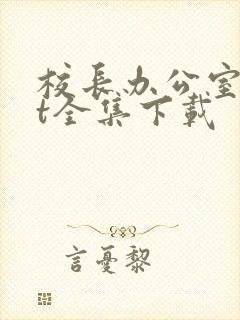 校长办公室
t全集下载
言憂黎